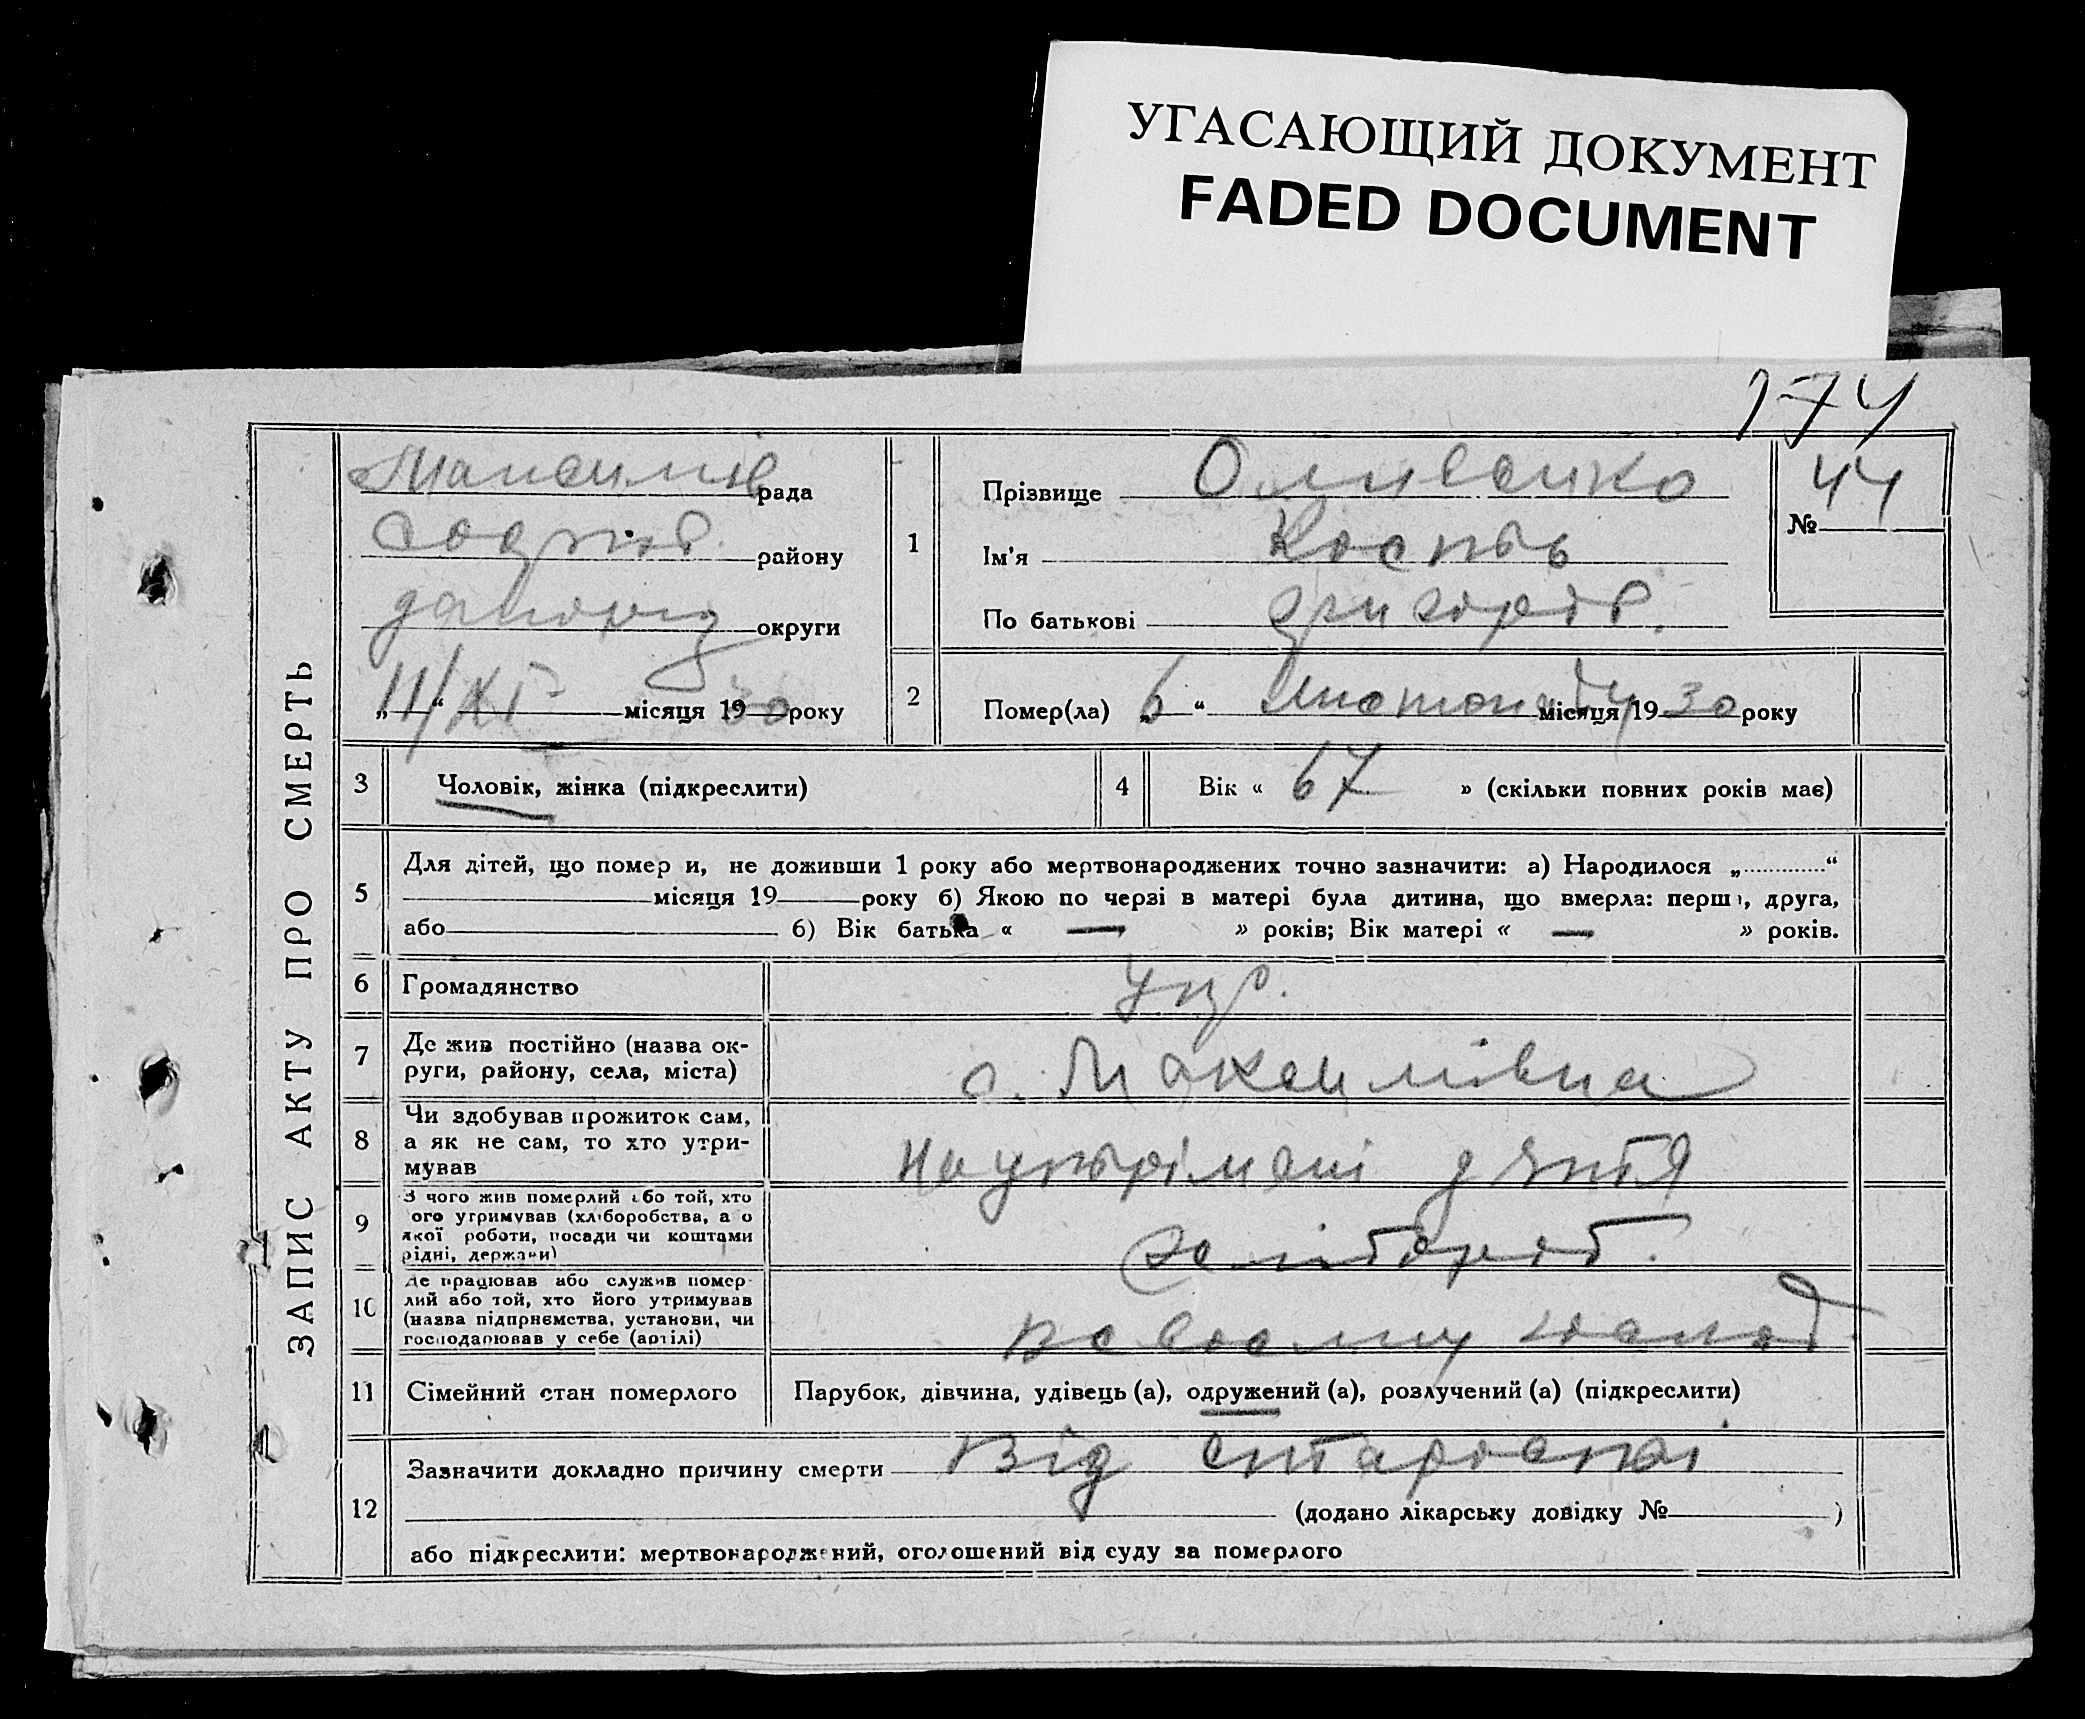 УГАСАЮЩИЙ ДОКУМЕНТ
FADED DOCUMENT
174
ЗАПИС АКТУ ПРО СМЕРТЬ
Максимів рада
району
округи
„11/XI“ місяця 1930 року
1
Прізвище Оливенко
Ім'я Кость
По батькові Григоров.
№ 44
2
Помер(ла) „6“ Листопаду місяця 1930 року
3
Чоловік, жінка (підкреслити)
4
Вік « 67 » (скільки повних років має)
5
Для дітей, що помер и, не доживши 1 року або мертвонароджених точно зазначити: а) Народилося „ “
місяця 19 року б) Якою по черзі в матері була дитина, що вмерла: перш , друга,
або б) Вік батька « — » років; Вік матері « — » років.
6
Громадянство
Укр.
7
Де жив постійно (назва ок-
руги, району, села, міста)
с. Максимівка
8
Чи здобував прожиток сам,
а як не сам, то хто утри-
мував
На утрімані
9
З чого жив померлий або той, хто
ого утримував (хліборобства, а о
якої роботи, посади чи коштами
рідні, держави)
10
Де працював або служив помер-
лий або той, хто його утримував
(назва підприємства, установи, чи
господарював у себе (артілі)
11
Сімейний стан померлого
Парубок, дівчина, удівець (а), одружений (а), розлучений (а) (підкреслити)
12
Зазначити докладно причину смерти Від старості
(додано лікарську довідку № )
або підкреслити: мертвонароджений, оголошений від суду за померлого